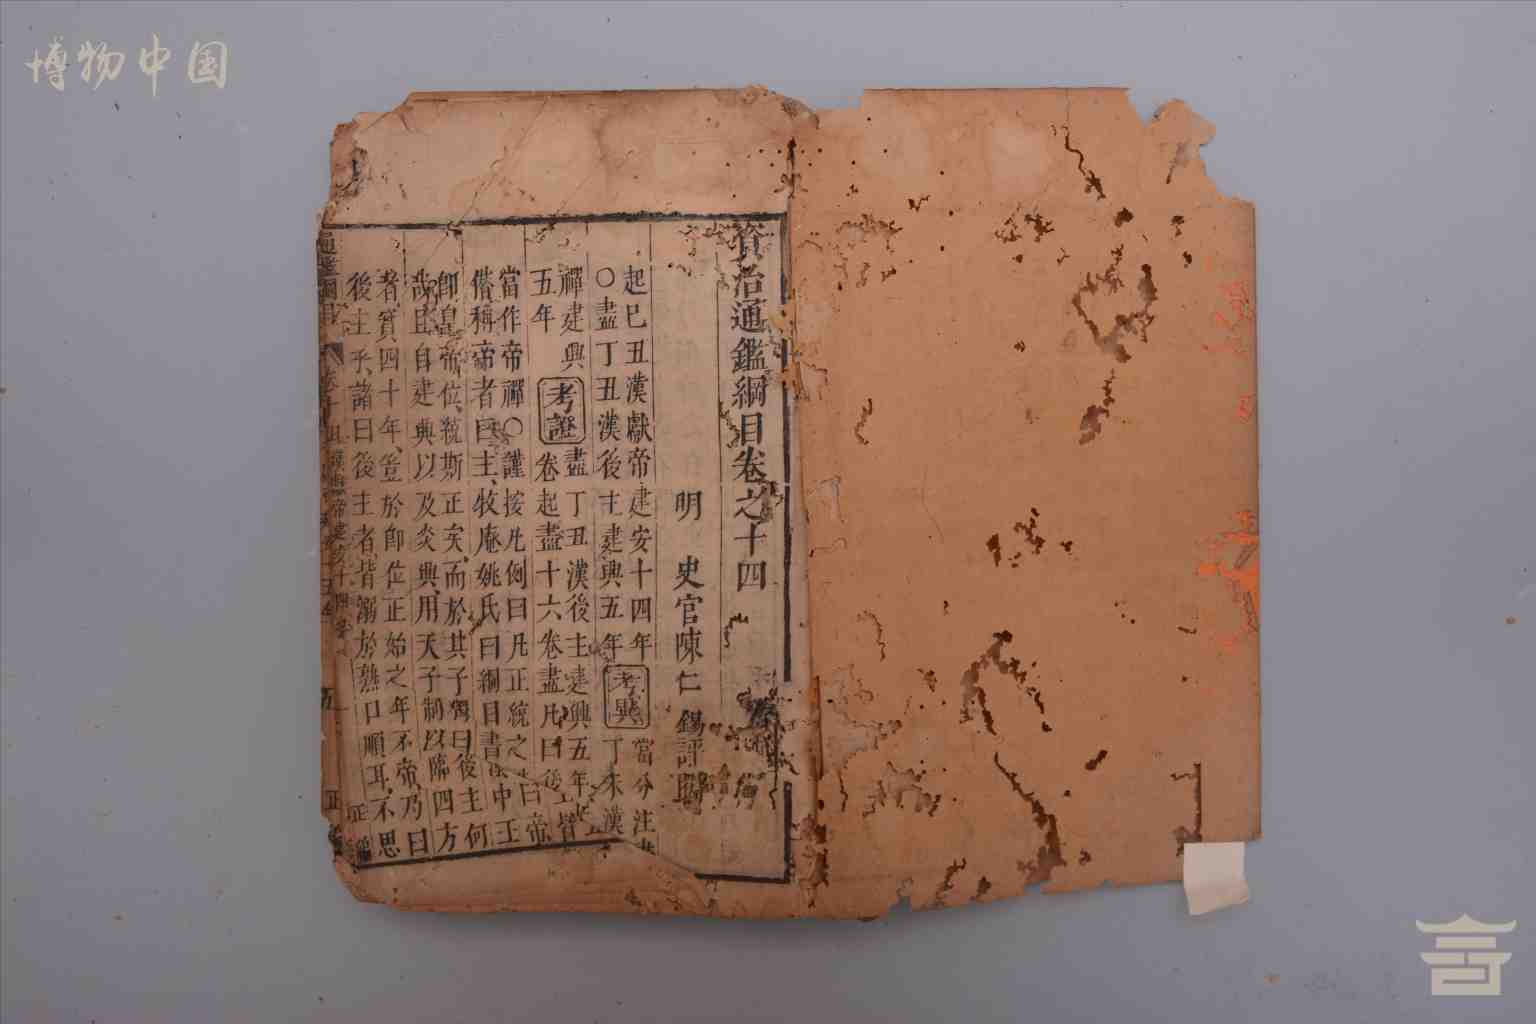 博物中国
資治通鑑綱目卷之十四
明 史官陳仁錫評閱
起己丑漢獻帝建安十四年
○盡丁丑漢後主建興五年
考異
當分注
丁未漢
禪建興
五年
考證
盡丁丑漢後主建興五年
卷起盡十六卷盡凡曰
當作帝禪○謹按凡例曰凡正統之
曰帝
僭稱帝者曰主牧庵姚氏曰綱目書
中王
即皇帝位統斯正矣而於其子獨曰後主何
哉且自建興以及炎興用天子制以臨四方
者實四十年豈於即位正始之年不帝乃曰
後主乎諸曰後主者皆溺於熟口順耳不思